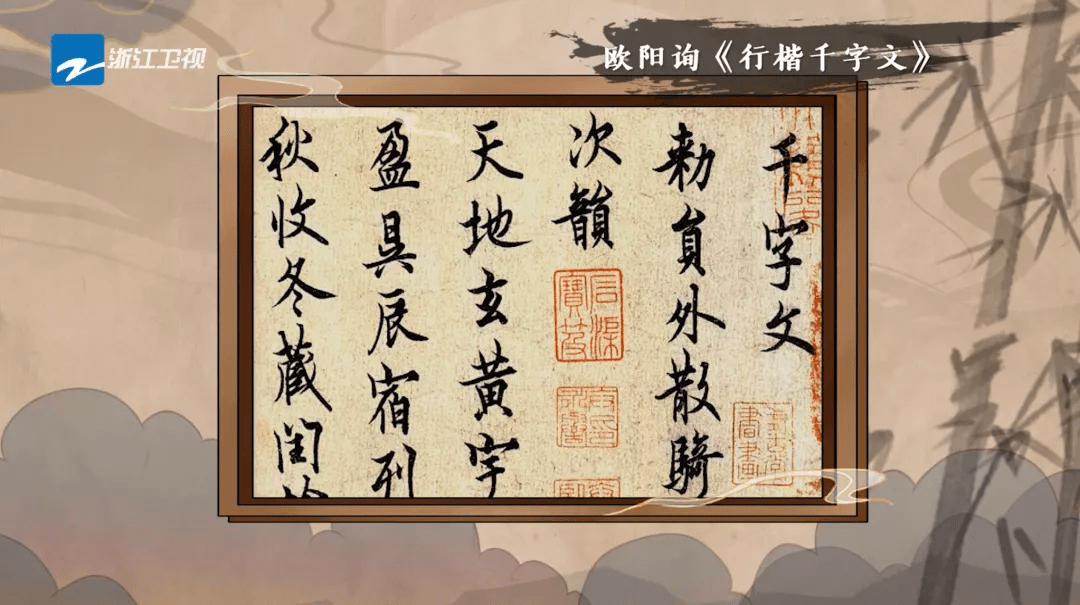 浙江卫视
欧阳询《行楷千字文》
千字文
勑員外散騎
次韻
天地玄黄宇
盈昃辰宿列
秋收冬藏閏